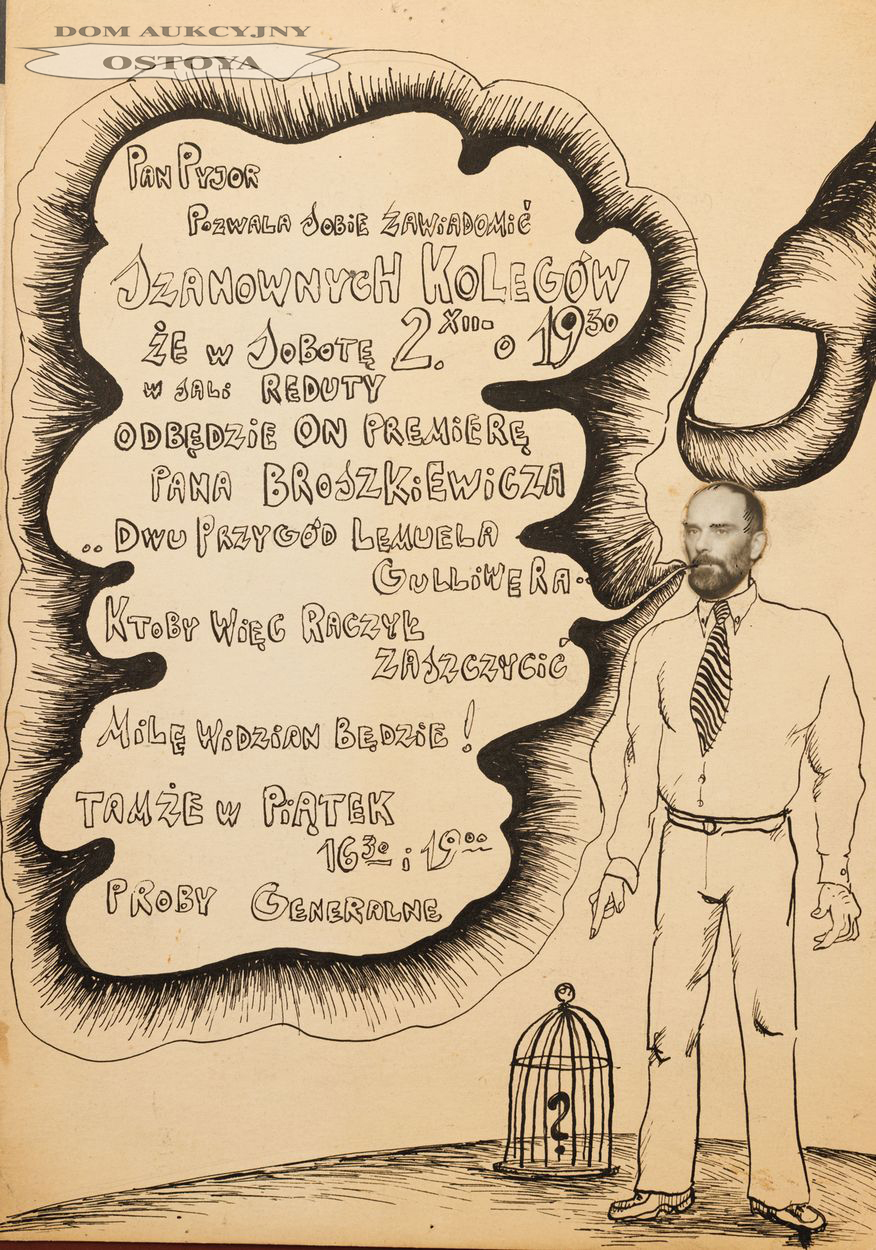 DOM AUKCYJNY
OSTOYA
PAN PYJOR
POZWALA SOBIE ZAWIADOMIĆ
SZANOWNYCH KOLEGÓW
ŻE W SOBOTĘ 2.XII. O 19 30
W SALI REDUTY
ODBĘDZIE ON PREMIERĘ
PANA BROSZKIEWICZA
„DWU PRZYGÓD LEMUELA
GULLIWERA"
KTOBY WIĘC RACZYŁ
ZASZCZYCIĆ
MILE WIDZIAN BĘDZIE!
TAMŻE W PIĄTEK
16 30 i 19 00
PROBY GENERALNE
?